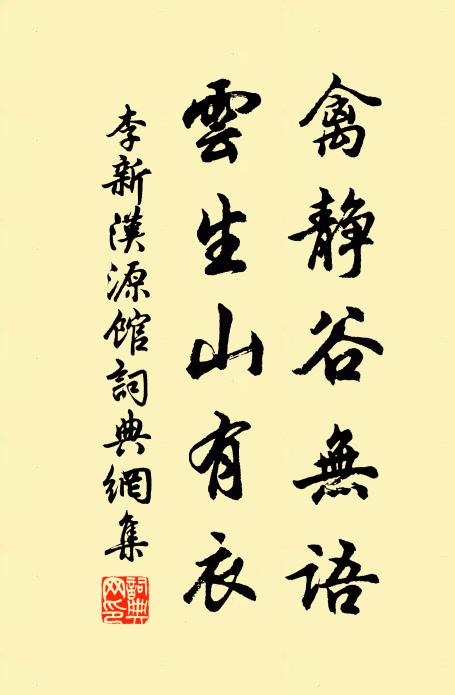 禽靜谷無語
雲生山有衣
李新漢源館詞典網集
詞典網印